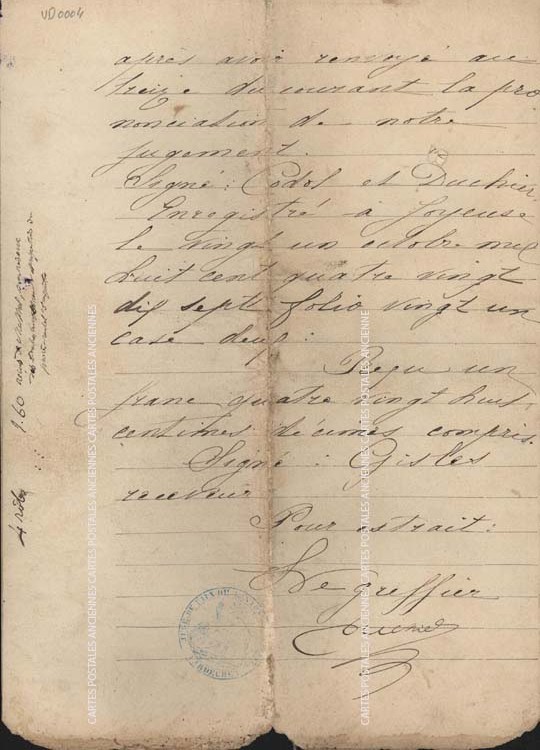 VD0004
après avoir renvoyé au
treize du courant la pro
nonciation de notre
jugement.
Signé : Codol et Duchier
Enregistré à Joyeuse
le vingt un octobre mil
huit cent quatre vingt
dix sept folio vingt un
case deux :
Reçu un
franc quatre vingt huit
centimes décimes compris.
Signé : Gisles
receveur
Pour extrait :
Le greffier
4 rôles
1.60
CARTES POSTALES ANCIENNES CARTES POSTALES ANCIENNES CARTES POSTALES ANCIENNES
CARTES POSTALES ANCIENNES CARTES POSTALES ANCIENNES CARTES POSTALES ANCIENNES